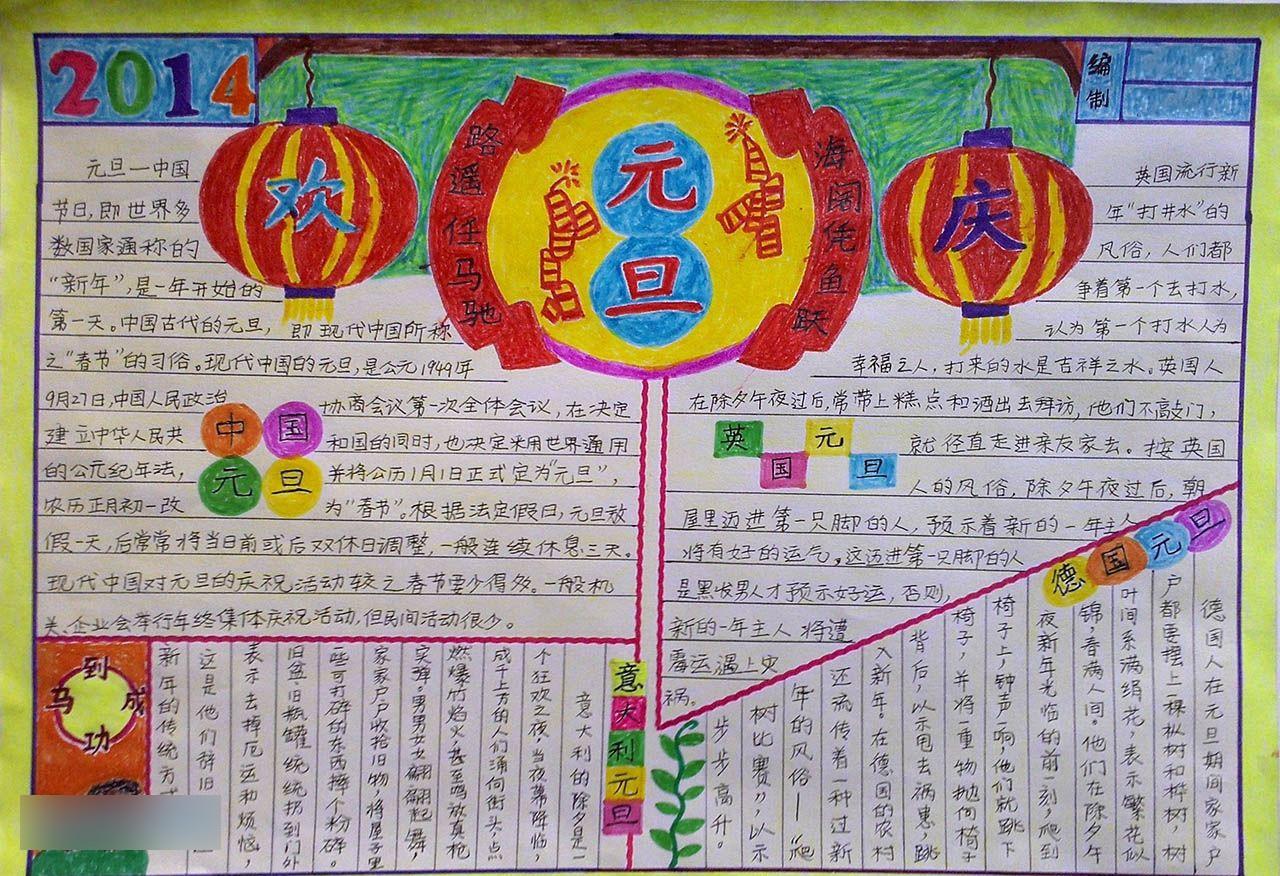 2014
编制
欢
庆
元旦
路遥任马驰
海阔凭鱼跃
元旦一中国
节日,即世界多
数国家通称的
“新年”,是一年开始的
第一天。中国古代的元旦,即现代中国所称
之“春节”的习俗。现代中国的元旦,是公元1949年
9月27日,中国人民政治协商会议第一次全体会议,在决定
建立中华人民共和国的同时,也决定采用世界通用
的公元纪年法,并将公历1月1日正式定为“元旦”,
农历正月初一改为“春节”。根据法定假日,元旦放
假一天,后常常将当日前或后双休日调整,一般连续休息三天。
现代中国对元旦的庆祝活动较之春节要少得多。一般机
关、企业会举行年终集体庆祝活动,但民间活动很少。
中国
元旦
英国流行新
年“打井水”的
风俗,人们都
争着第一个去打水,
认为第一个打水人为
幸福之人,打来的水是吉祥之水。英国人
在除夕午夜过后,常带上糕点和酒出去拜访,他们不敲门,
就径直走进亲友家去。按英国
人的风俗,除夕午夜过后,朝
屋里迈进第一只脚的人,预示着新的一年主人
将有好的运气。这迈进第一只脚的人
是黑发男人才预示好运,否则,
新的一年主人将遭
霉运遇上灾
祸。
英国元旦
德国元旦
德国人在元旦期间家家户
户都要摆上一棵枞树和桦树,树
叶间系满绢花,表示繁花似
锦,春满人间。他们在除夕午
夜新年光临的前一刻,爬到
椅子上,钟声一响,他们就跳下
椅子,并将一重物抛向椅子
背后,以示甩去祸患,跳
入新年。在德国的农村
还流传着一种过新
年的风俗——“爬
树比赛”,以示
步步高升。
意大利元旦
意大利的除夕是一
个狂欢之夜,当夜幕降临,
成千上万的人们涌向街头,点
燃爆竹焰火,甚至鸣放真枪
实弹。男男女女翩翩起舞,
家家户户收拾旧物,将屋子里
些可打碎的东西摔个粉碎。
旧盆、旧瓶罐统统扔到门外
表示去掉厄运和烦恼,
这是他们辞旧
新年的传统方
马到成功